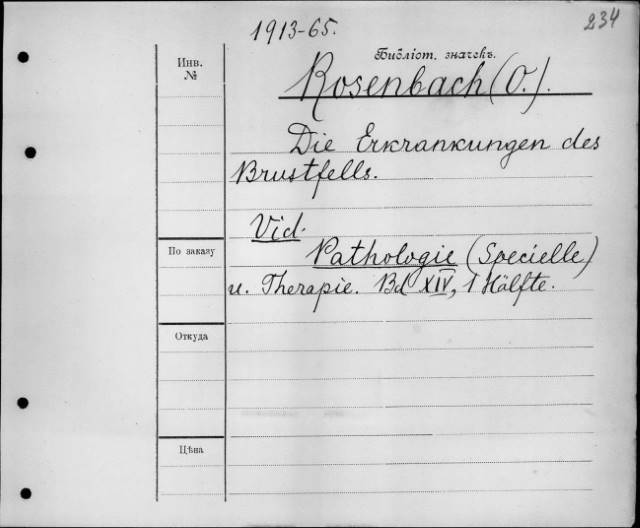 234
1913-65.
Инв.
№
Библіот. значекъ.
Rosenbach (O.).
Die Erkrankungen des
Brustfells.
Vid.
По заказу
Pathologie (Specielle)
u. Therapie. Bd XIV, 1 Hälfte.
Откуда
Цѣна